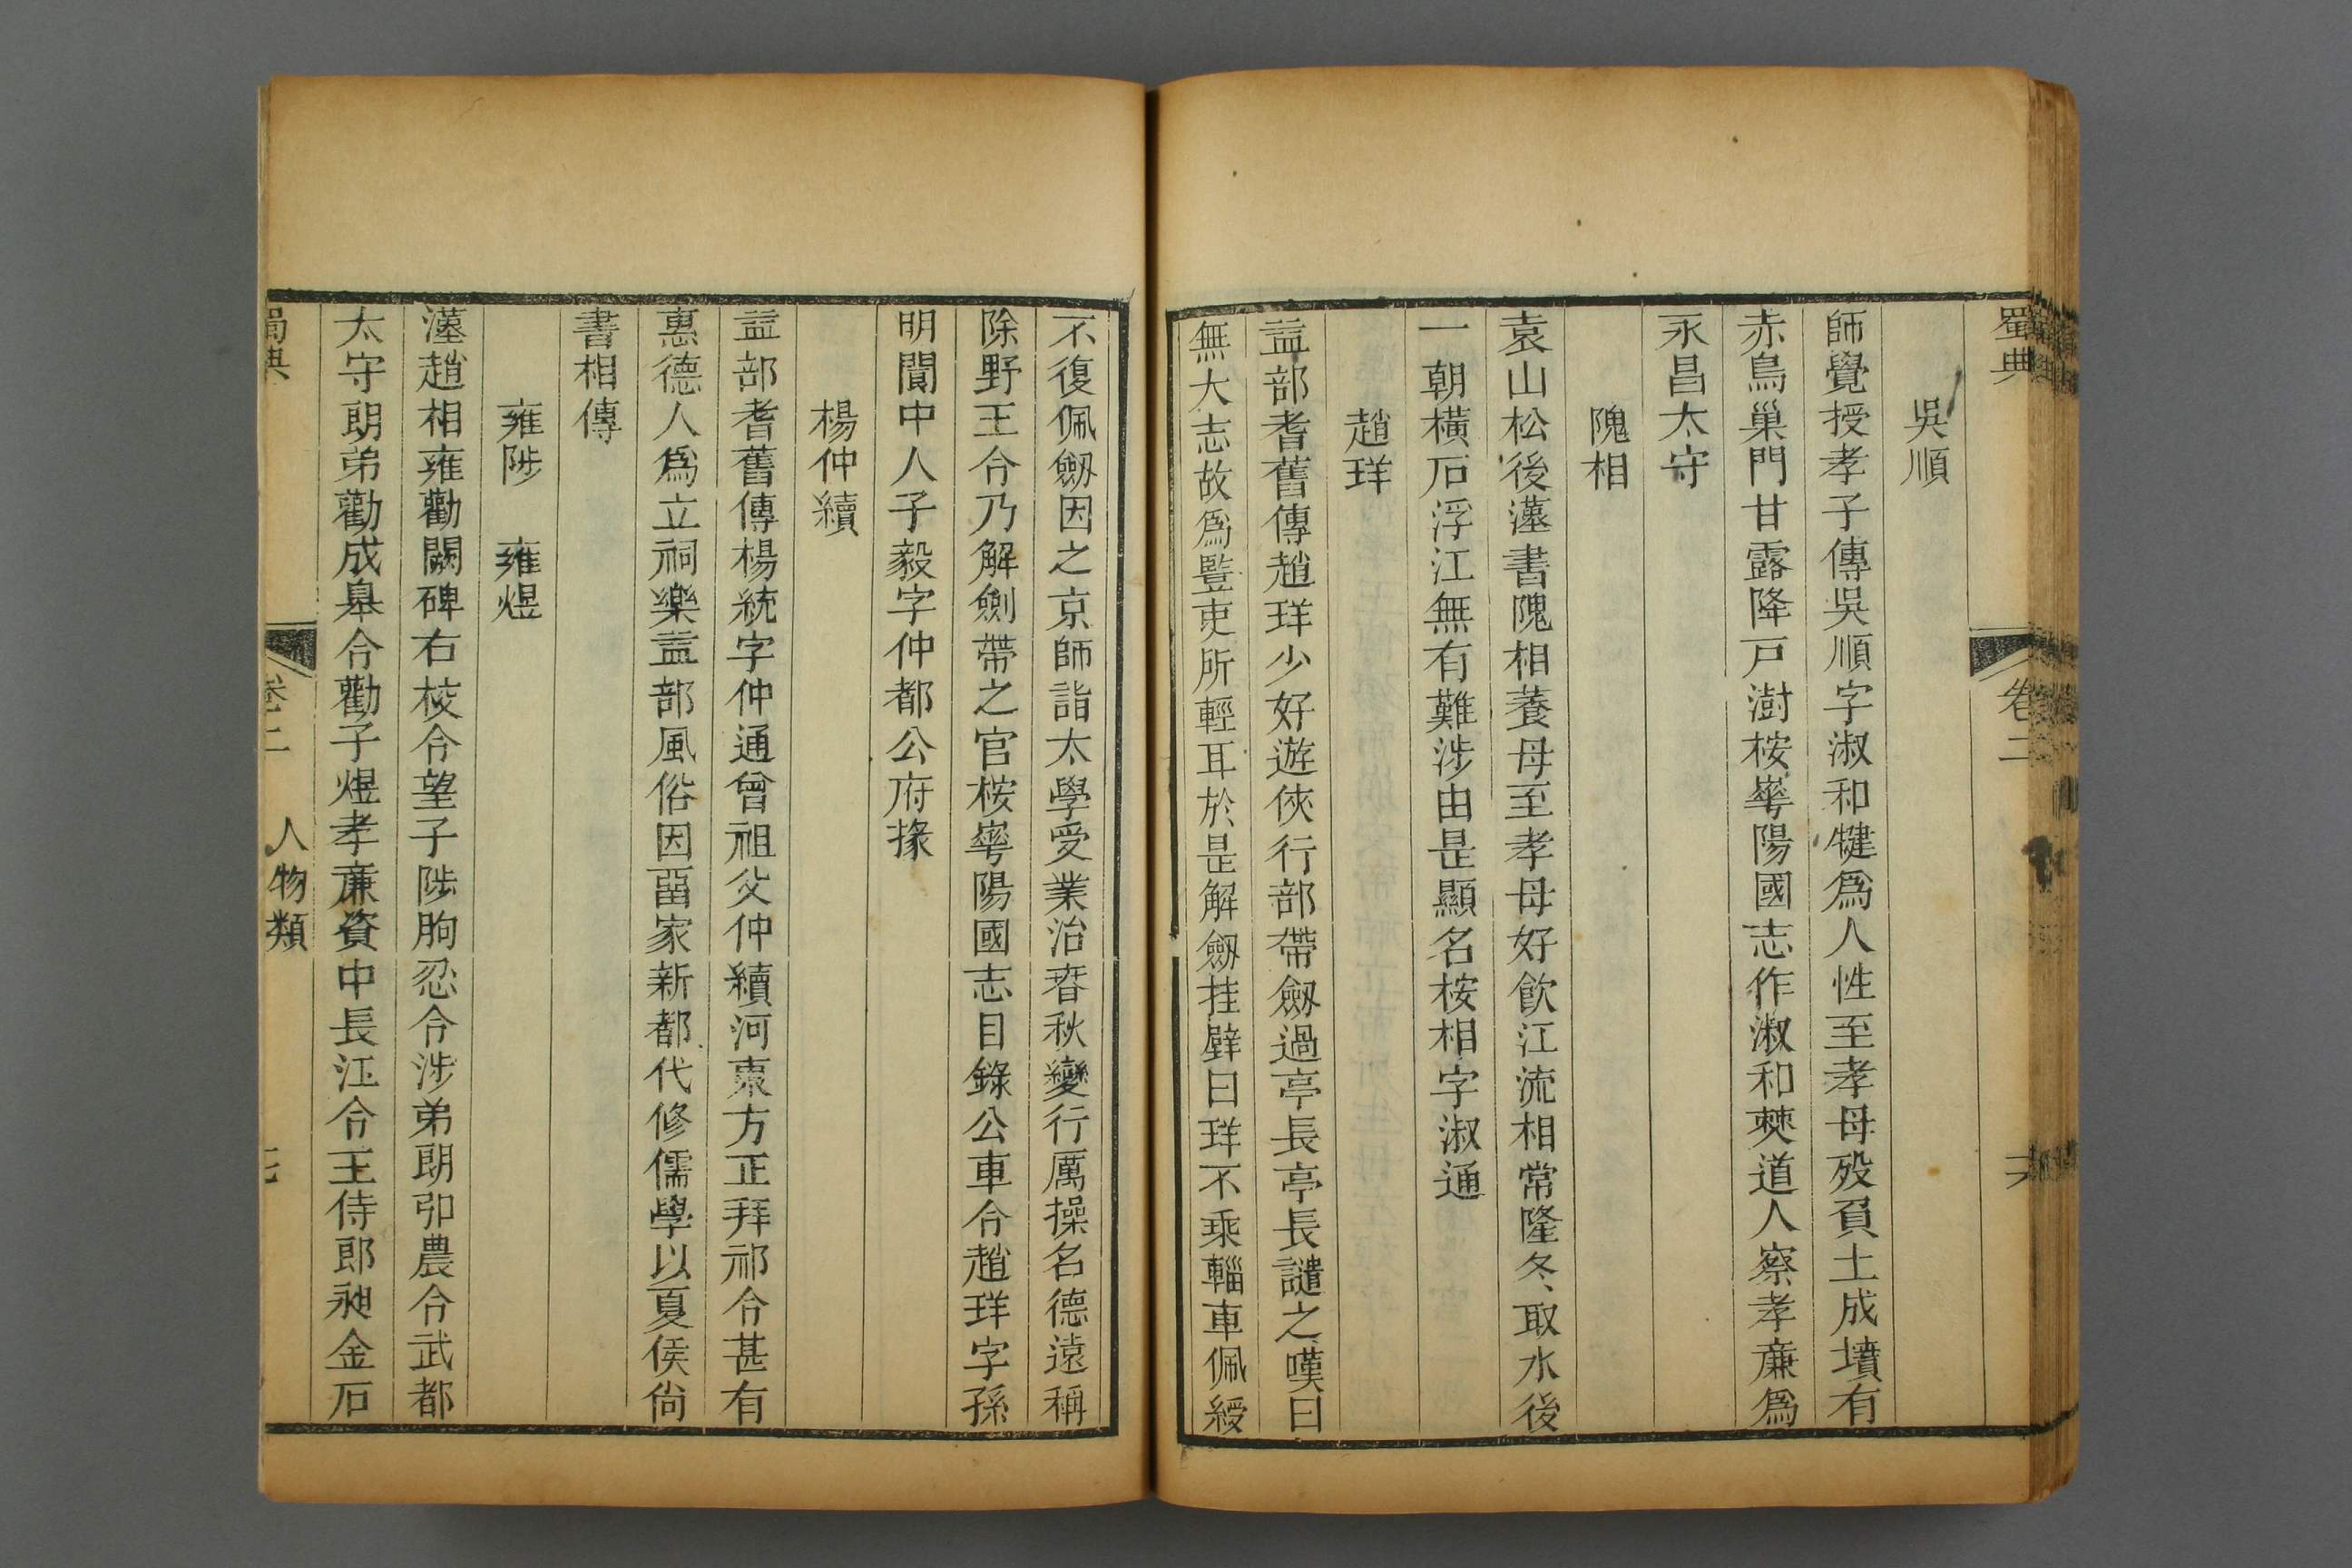 蜀典
卷二
吳順
師覺授孝子傳吳順字淑和犍爲人性至孝母歿負土成墳有
赤烏巢門甘露降戸澍桉華陽國志作淑和僰道人察孝廉爲
永昌太守
隗相
袁山松後漢書隗相養母至孝母好飲江流相常隆冬取水後
一朝橫石浮江無有難涉由是顯名桉相字淑通
趙珜
益部耆舊傳趙珜少好遊俠行部帶劒過亭長亭長譴之嘆曰
無大志故爲豎吏所輕耳於是解劒挂壁曰珜不乘輜車佩綬
不復佩劒因之京師詣太學受業治春秋變行厲操名德遠稱
除野王令乃解劍帶之官桉華陽國志目錄公車令趙珜字孫
明閬中人子毅字仲都公府掾
楊仲續
益部耆舊傳楊統字仲通曾祖父仲續河東方正拜祁令甚有
惠德人爲立祠樂益部風俗因畱家新都代修儒學以夏侯尙
書相傳
雍陟　雍煜
漢趙相雍勸闕碑右校令望子陟朐忍令涉弟朗卭農令武都
太守朗弟勸成皋令勸子煜孝廉資中長江令王侍郎昶金石
蜀典
卷二
人物類